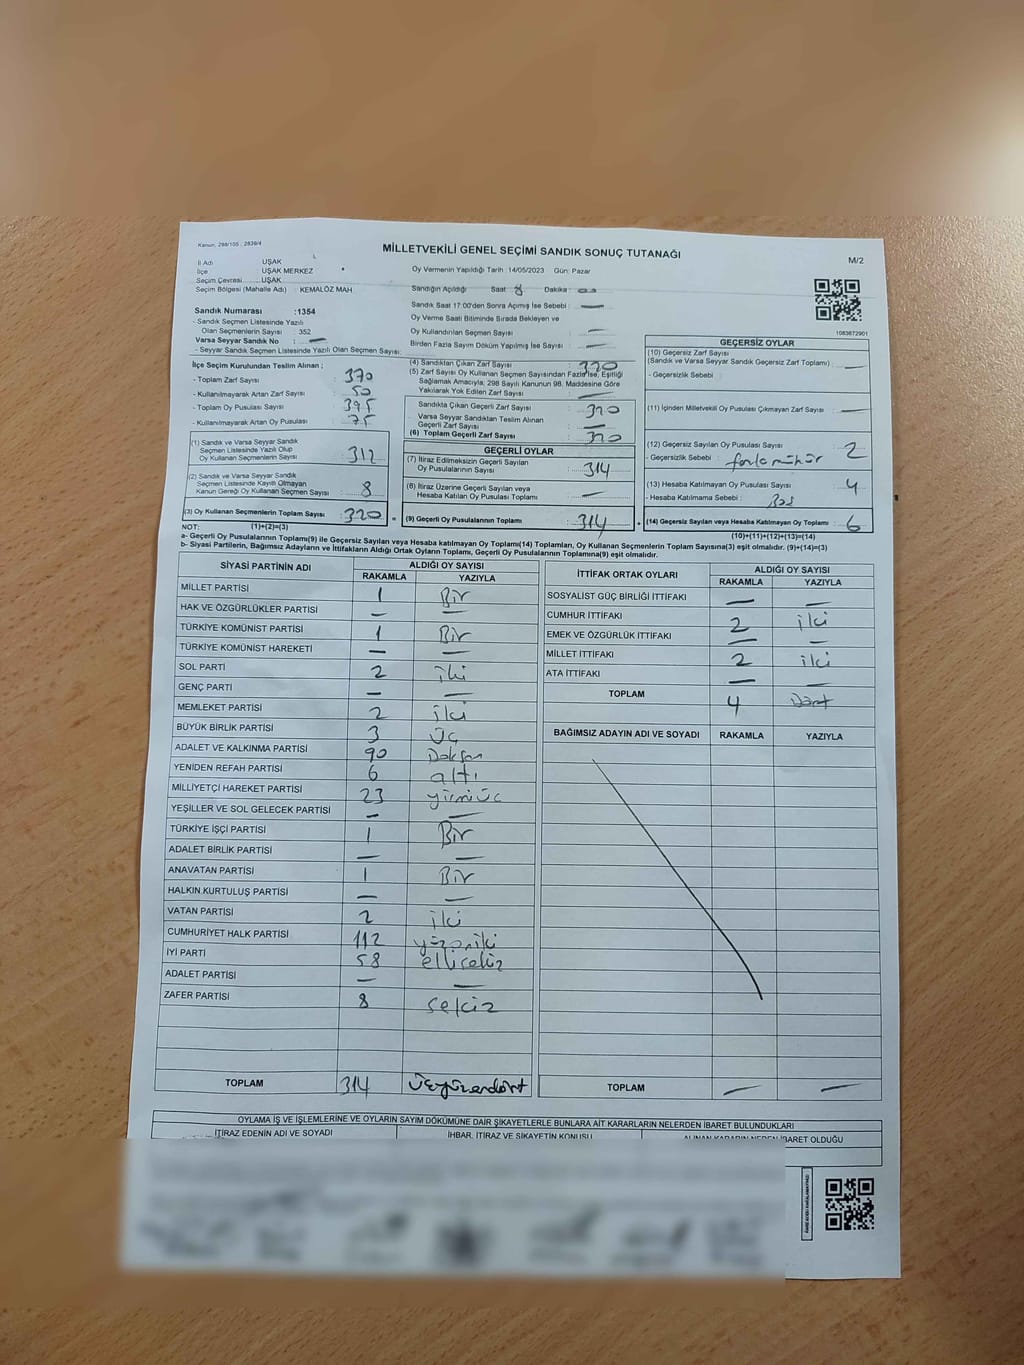 Kanun, 298/105 , 2839/4
MİLLETVEKİLİ GENEL SEÇİMİ SANDIK SONUÇ TUTANAĞI
M/2
İl Adı UŞAK
İlçe UŞAK MERKEZ
Seçim Çevresi UŞAK
Seçim Bölgesi (Mahalle Adı) : KEMALÖZ MAH.
Oy Vermenin Yapıldığı Tarih :14/05/2023 Gün: Pazar
Sandığın Açıldığı Saat : 8 Dakika :
Sandık Saat 17:00'den Sonra Açımış İse Sebebi : —
Oy Verme Saati Bitiminde Sırada Bekleyen ve
Oy Kullandırılan Seçmen Sayısı : —
Birden Fazla Sayım Döküm Yapılmış İse Sayısı : —
1083672901
Sandık Numarası :1354
- Sandık Seçmen Listesinde Yazılı
Olan Seçmenlerin Sayısı : 352
Varsa Seyyar Sandık No : —
- Seyyar Sandık Seçmen Listesinde Yazılı Olan Seçmen Sayısı:
İlçe Seçim Kurulundan Teslim Alınan ;
- Toplam Zarf Sayısı : 370
- Kullanılmayarak Artan Zarf Sayısı : 50
- Toplam Oy Pusulası Sayısı : 395
- Kullanılmayarak Artan Oy Pusulası : 75
(1) Sandık ve Varsa Seyyar Sandık
Seçmen Listesinde Yazılı Olup
Oy Kullanan Seçmenlerin Sayısı : 312
(2) Sandık ve Varsa Seyyar Sandık
Seçmen Listesinde Kayıtlı Olmayan
Kanun Gereği Oy Kullanan Seçmen Sayısı : 8
(3) Oy Kullanan Seçmenlerin Toplam Sayısı : 320
(4) Sandıktan Çıkan Zarf Sayısı : 320
(5) Zarf Sayısı Oy Kullanan Seçmen Sayısından Fazla İse, Eşitliği
Sağlamak Amacıyla, 298 Sayılı Kanunun 98. Maddesine Göre
Yakılarak Yok Edilen Zarf Sayısı : —
Sandıkta Çıkan Geçerli Zarf Sayısı : 320
- Varsa Seyyar Sandıktan Teslim Alınan
Geçerli Zarf Sayısı : —
(6) Toplam Geçerli Zarf Sayısı : 320
GEÇERLİ OYLAR
(7) İtiraz Edilmeksizin Geçerli Sayılan
Oy Pusulalarının Sayısı : 314
(8) İtiraz Üzerine Geçerli Sayılan veya
Hesaba Katılan Oy Pusulası Toplamı : —
(9) Geçerli Oy Pusulalarının Toplamı : 314
GEÇERSİZ OYLAR
(10) Geçersiz Zarf Sayısı
(Sandık ve Varsa Seyyar Sandık Geçersiz Zarf Toplamı) : —
- Geçersizlik Sebebi :
(11) İçinden Milletvekili Oy Pusulası Çıkmayan Zarf Sayısı : —
(12) Geçersiz Sayılan Oy Pusulası Sayısı : 2
- Geçersizlik Sebebi : fazla mühür
(13) Hesaba Katılmayan Oy Pusulası Sayısı : 4
- Hesaba Katılmama Sebebi : Boş
(14) Geçersiz Sayılan veya Hesaba Katılmayan Oy Toplamı : 6
NOT: (1)+(2)=(3)
(10)+(11)+(12)+(13)=(14)
a- Geçerli Oy Pusulalarının Toplamı(9) ile Geçersiz Sayılan veya Hesaba katılmayan Oy Toplamı(14) Toplamları, Oy Kullanan Seçmenlerin Toplam Sayısına(3) eşit olmalıdır. (9)+(14)=(3)
b- Siyasi Partilerin, Bağımsız Adayların ve İttifakların Aldığı Ortak Oyların Toplamı, Geçerli Oy Pusulalarının Toplamına(9) eşit olmalıdır.
SİYASİ PARTİNİN ADI ALDIĞI OY SAYISI
RAKAMLA YAZIYLA
MİLLET PARTİSİ 1 Bir
HAK VE ÖZGÜRLÜKLER PARTİSİ — —
TÜRKİYE KOMÜNİST PARTİSİ 1 Bir
TÜRKİYE KOMÜNİST HAREKETİ — —
SOL PARTİ 2 iki
GENÇ PARTİ — —
MEMLEKET PARTİSİ 2 iki
BÜYÜK BİRLİK PARTİSİ 3 üç
ADALET VE KALKINMA PARTİSİ 90 Doksan
YENİDEN REFAH PARTİSİ 6 altı
MİLLİYETÇİ HAREKET PARTİSİ 23 yirmiüç
YEŞİLLER VE SOL GELECEK PARTİSİ — —
TÜRKİYE İŞÇİ PARTİSİ 1 Bir
ADALET BİRLİK PARTİSİ — —
ANAVATAN PARTİSİ 1 Bir
HALKIN KURTULUŞ PARTİSİ — —
VATAN PARTİSİ 2 iki
CUMHURİYET HALK PARTİSİ 112 yüzoniki
İYİ PARTİ 58 ellisekiz
ADALET PARTİSİ — —
ZAFER PARTİSİ 8 sekiz
TOPLAM 314 üçyüzondört
İTTİFAK ORTAK OYLARI ALDIĞI OY SAYISI
RAKAMLA YAZIYLA
SOSYALİST GÜÇ BİRLİĞİ İTTİFAKI — —
CUMHUR İTTİFAKI 2 iki
EMEK VE ÖZGÜRLÜK İTTİFAKI — —
MİLLET İTTİFAKI 2 iki
ATA İTTİFAKI — —
TOPLAM 4 Dört
BAĞIMSIZ ADAYIN ADI VE SOYADI RAKAMLA YAZIYLA
TOPLAM — —
OYLAMA İŞ VE İŞLEMLERİNE VE OYLARIN SAYIM DÖKÜMÜNE DAİR ŞİKAYETLERLE BUNLARA AİT KARARLARIN NELERDEN İBARET BULUNDUKLARI
İTİRAZ EDENİN ADI VE SOYADI İHBAR, İTİRAZ VE ŞİKAYETİN KONUSU ALINAN KARARIN NEDEN İBARET OLDUĞU